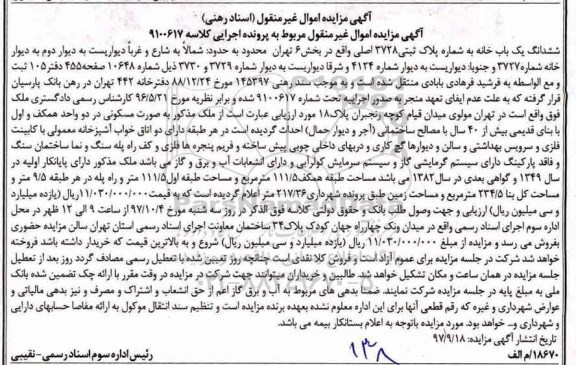 آگهی مزایده اموال غیرمنقول (اسناد رهنی)
آگهی مزایده اموال غیرمنقول مربوط به پرونده اجرایی کلاسه ۹۱۰۰۶۱۷
ششدانگ یک باب خانه به شماره پلاک ثبتی۳۷۲۸ اصلی واقع در بخش۶ تهران محدود به حدود: شمالاً به شارع و غرباً دیواریست به دیوار دوم به دیوار
خانه شماره۳۷۲۷ و جنوباً: دیواریست به دیوار شماره ۴۱۲۴ و شرقا دیواریست به دیوار شماره ۳۷۲۹ و ۳۷۳۰ ذیل شماره ۱۰۶۴۸ صفحه۴۵۵ دفتر۱۰۵ ثبت
و مع الواسطه به فرشید فرهادی بابادی منتقل شده است و به موجب سند رهنی ۱۴۵۳۹۷ مورخ ۸۸/۱۲/۲۴ دفترخانه ۴۴۲ تهران در رهن بانک پارسیان
قرار گرفته که به علت عدم ایفای تعهد منجر به صدور اجرائیه تحت شماره ۹۱۰۰۶۱۷ شده و برابر نظریه مورخ ۹۶/۵/۲۱ کارشناس رسمی دادگستری ملک
فوق واقع است در تهران مولوی میدان قیام کوچه رنجبران پلاک۱۸ مورد ارزیابی عبارت است از ملک مذکور به صورت مسکونی در دو واحد همکف و اول
با بنای قدیمی بیش از ۴۰ سال با مصالح ساختمانی (آجر و دیوار حمال) احداث گردیده است در هر طبقه دارای دو اتاق خواب آشپزخانه معمولی با کابینت
فلزی و سرویس بهداشتی و سالن و دیوارها گچ کاری و دربهای داخلی چوبی پیش ساخته و فریم پنجره ها فلزی و کف راه پله سنگ و نما ساختمان سنگ
و فاقد پارکینگ دارای سیستم گرمایشی گاز و سیستم سرمایش کولرآبی و دارای انشعابات آب و برق و گاز می باشد ملک مذکور دارای پایانکار اولیه در
سال ۱۳۴۹ و گواهی بعدی در سال۱۳۸۲ می باشد مساحت طبقه همکف۱۱۱/۵ مترمربع و مساحت طبقه اول۱۱۱/۵ متر و راه پله در هر طبقه ۹/۵ متر و
مساحت کل بنا ۲۳۴/۵ مترمربع و مساحت زمین طبق پرونده شهرداری۲۱۷/۳۶ متر اعلام گردیده است که به قیمت۱۱/۰۳۰/۰۰۰/۰۰۰ریال (یازده میلیارد
و سی میلیون ریال) ارزیابی و جهت وصول طلب بانک و حقوق دولتی کلاسه فوق الذکر در روز سه شنبه مورخ ۹۷/۱۰/۴ از ساعت ۹ الی ۱۲ ظهر در محل
اداره سوم اجرای اسناد رسمی واقع در میدان ونک چهارراه جهان کودک پلاک۲۴ ساختمان معاونت اجرای اسناد رسمی استان تهران سالن مزایده حضوری
بفروش می رسد و مزایده از مبلغ ۱۱/۰۳۰/۰۰۰/۰۰۰ ریال (یازده میلیارد و سی میلیون ریال) شروع و به بالاترین قیمت که خریدار داشته باشد فروخته
خواهد شد شرکت در جلسه مزایده برای عموم آزاد است و فروش کلا نقدی است چنانچه روز تعیین شده با تعطیل رسمی مصادف گردد روز بعد از تعطیل
جلسه مزایده در همان ساعت و مکان تشکیل خواهد شد. طالبین و خریداران میتوانند جهت شرکت در مزایده در وقت مقرر با ارائه چک تضمین شده بانک
ملی به مبلغ پایه در جلسه مزایده شرکت نمایند. ضمنا بدهی های مربوط به آب و برق گاز اعم از حق انشعاب و اشتراک و مصرف و نیز بدهی مالیاتی و
عوارض شهرداری و غیره که رقم قطعی آنها برای این اداره معلوم نشده بعهده برنده مزایده است و تنظیم سند انتقال موکول به ارائه مفاصا حسابهای دارایی
و شهرداری و.. خواهد بود. مورد مزایده باتوجه به اعلام بستانکار بیمه می باشد.
تاریخ انتشار آگهی مزایده: ۹۷/۹/۱۸
۱۸۶۷۰/م الف
رئیس اداره سوم اسناد رسمی- نقیبی